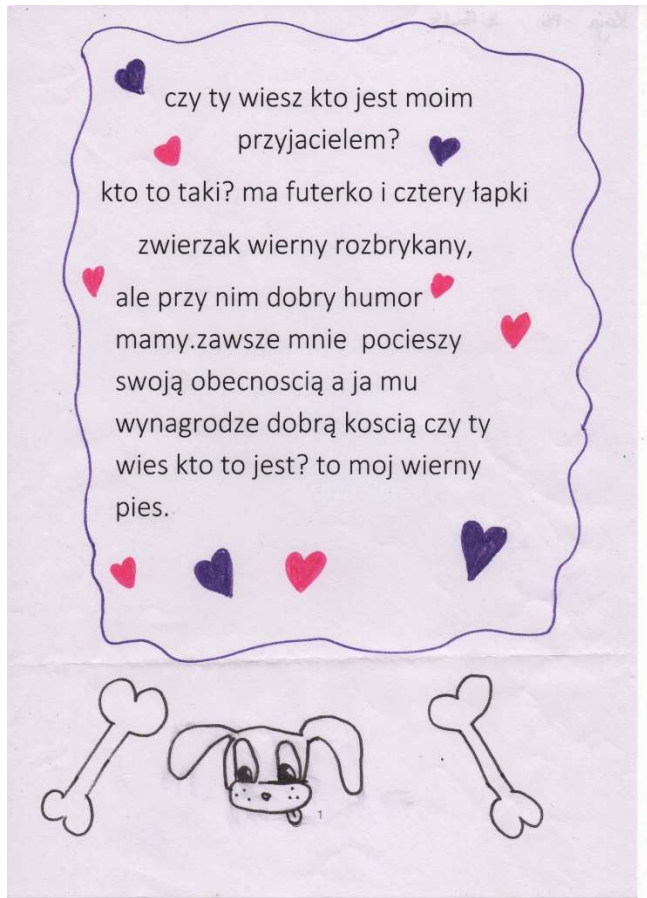 czy ty wiesz kto jest moim
przyjacielem?
kto to taki? ma futerko i cztery łapki
zwierzak wierny rozbrykany,
ale przy nim dobry humor
mamy.zawsze mnie pocieszy
swoją obecnoscią a ja mu
wynagrodze dobrą koscią czy ty
wies kto to jest? to moj wierny
pies.
1